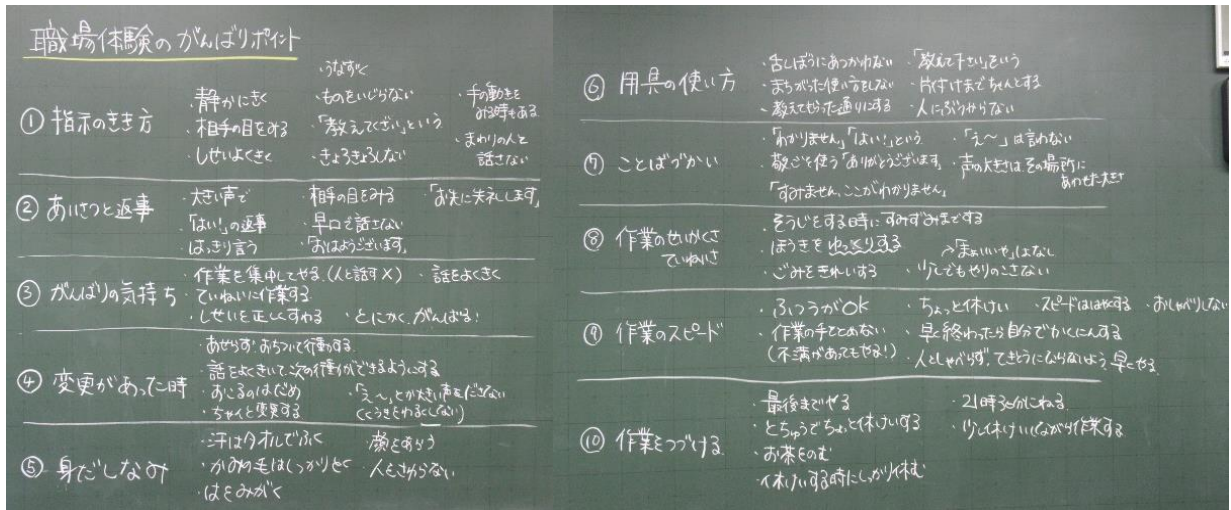 職場体験のがんばりポイント
① 指示のきき方
・静かにきく
・相手の目をみる
・しせいよくきく
・うなずく
・ものをいじらない
・「教えてください」という
・きょろきょろしない
・手の動きをみる時もある
・まわりの人と話さない
② あいさつと返事
・大きい声で
・「はい!」の返事
・はっきり言う
・相手の目をみる
・早口で話さない
・「おはようございます」
「お先に失礼します」
③ がんばりの気持ち
・作業を集中してやる(人と話す×)
・話をよくきく
・ていねいに作業する
・しせいを正しくすわる
・とにかくがんばる!
④ 変更があった時
・あせらず、おちついて行動する
・話をよくきいて、次の行動ができるようにする
・おこるのはだめ
・ちゃんと変更する
・「え〜」とか大きい声をださない
(くうきをわるくしない)
⑤ 身だしなみ
・汗はタオルでふく
・かみの毛はしっかりとく
・はをみがく
・顔をあらう
・人をさわらない
⑥ 用具の使い方
・まちがった使い方をしない
・教えてもらった通りにする
・「教えて下さい」という
・片付けまでちゃんとする
・人にぶつからない
⑦ ことばづかい
・「わかりません」「はい!」という
・「え〜」は言わない
・敬ごを使う「ありがとうございます」
・声の大きさはその場所にあわせた大きさ
「すみません、ここがわかりません」
⑧ 作業のせいかくさ
ていねいさ
・そうじをする時にすみずみまでする
ほうきをゆっくりする
→「まぁいいや」はなし
・ごみをきれいする
・少しでもやりのこさない
⑨ 作業のスピード
・ふつうがOK
・ちょっと休けい
・スピードははやくする
・おしゃべりしない
・作業の手をとめない
(不満があってもやる!)
・早く終わったら自分でかくにんする
・人としゃべらず、てきとうにならないよう、早くやる
⑩ 作業をつづける
・最後までやる
・とちゅうでちょっと休けいする
・お茶をのむ
・休けいする時にしっかり休む
・21時30分にねる
・少し休けいしながら作業する